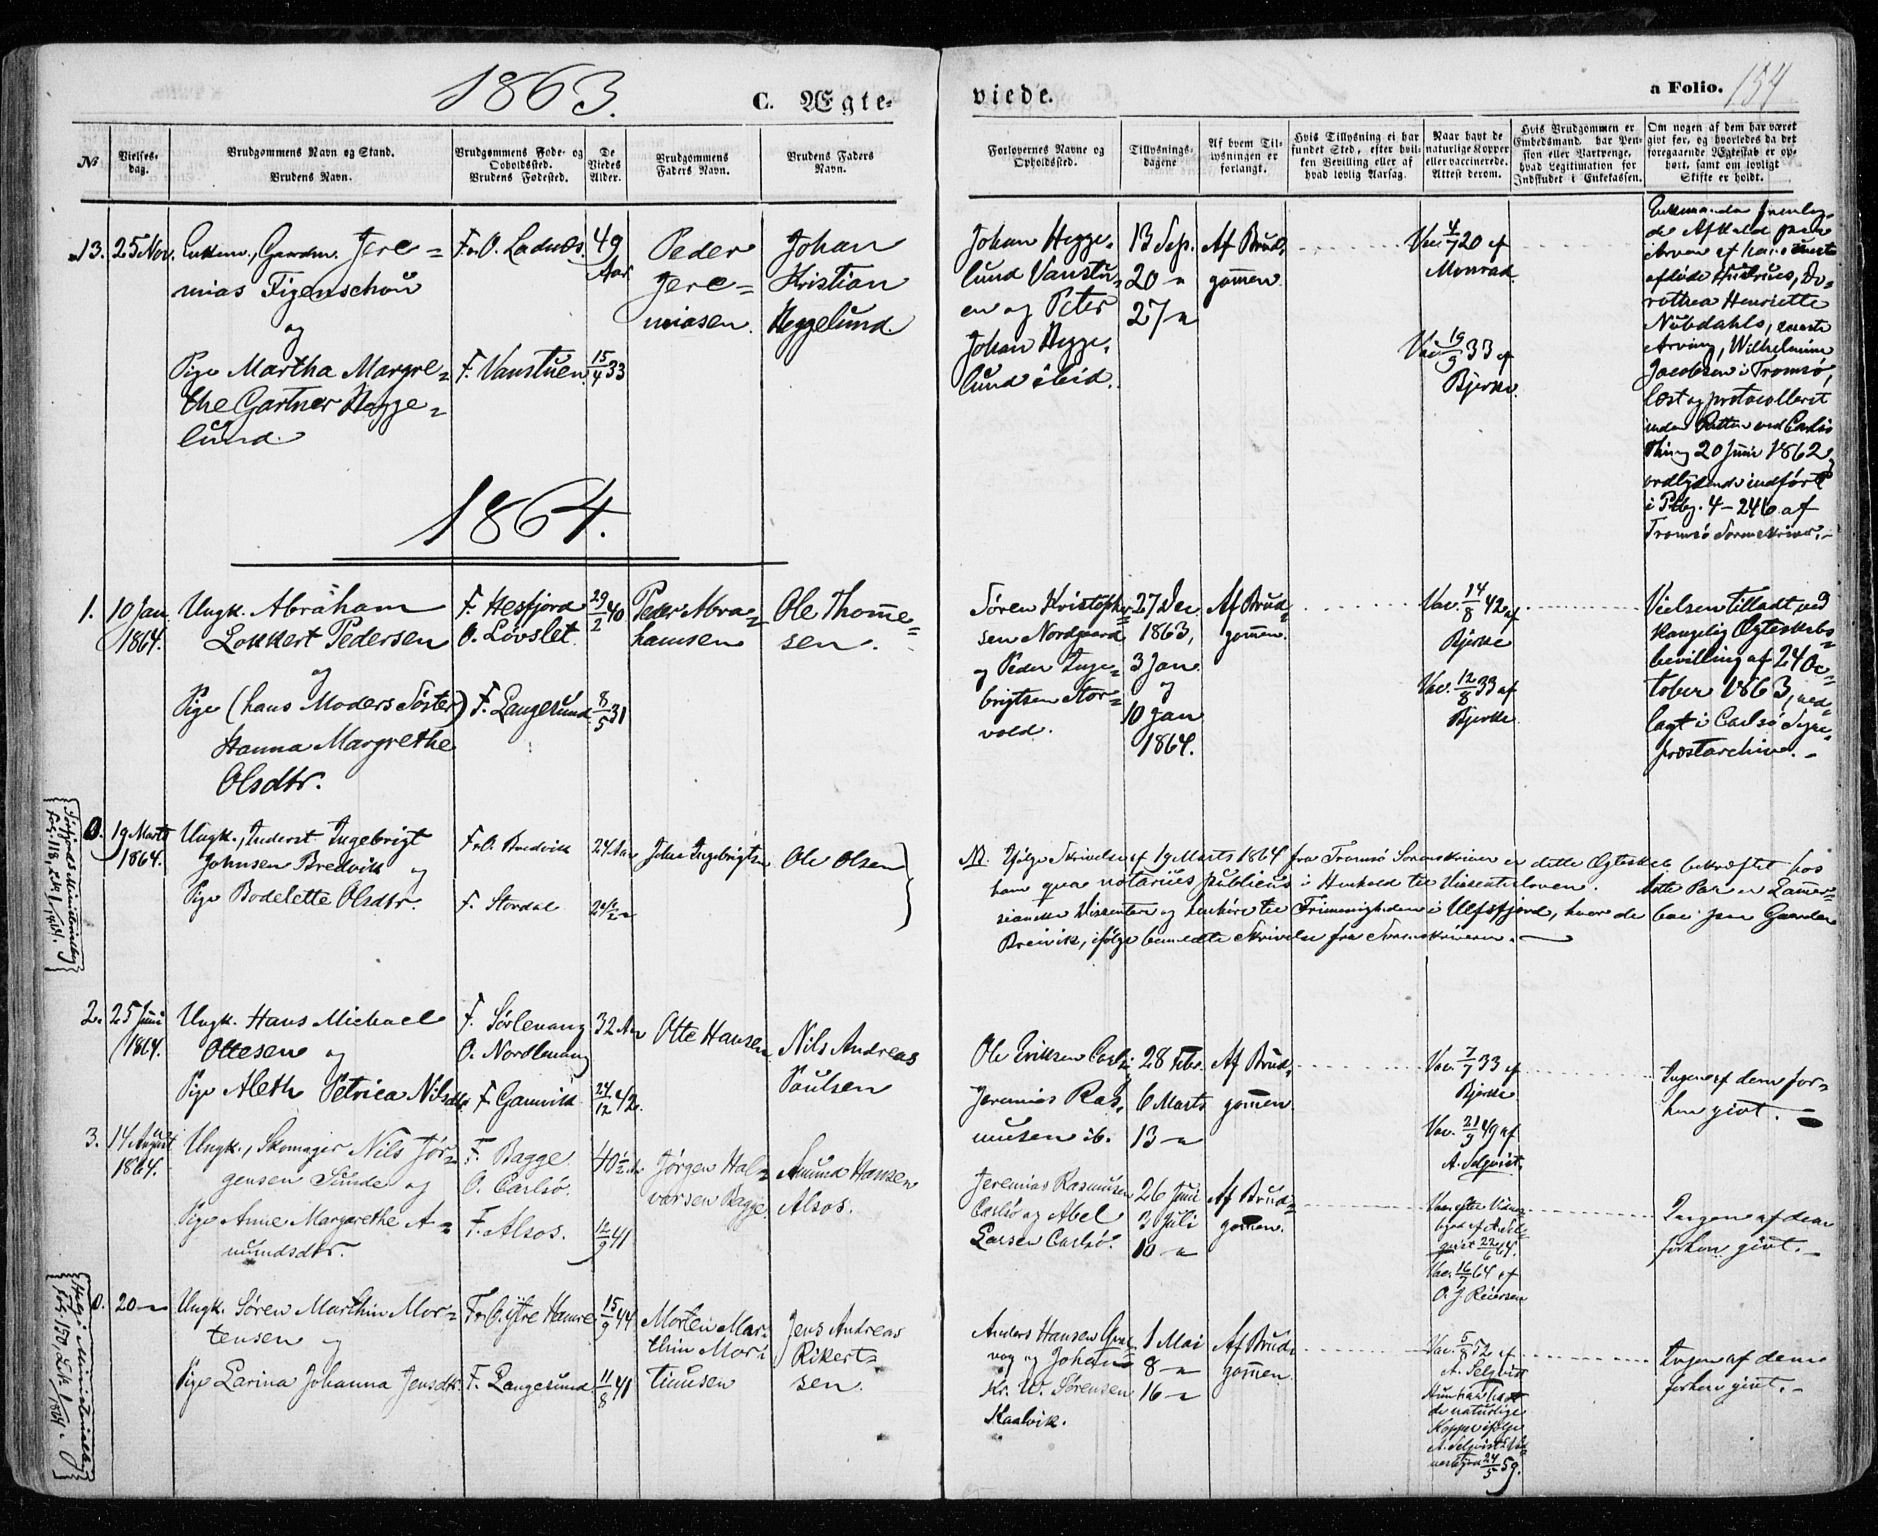 1863.
C. Ægte-
viede.
a Folio. 154
No
Vielses-
dag.
Brudgommens Navn og Stand.
Brudens Navn.
Brudgommens Føde- og
Opholdssted.
Brudens Fødested.
De
Viedes
Alder.
Brudgommens
Faders Navn.
Brudens Faders
Navn.
Forlovernes Navne og
Opholdssted.
Tillysnings-
dagene
Af hvem Til-
lysningen er
forlangt.
Hvis Tillysning ei har
fundet Sted, efter hvil-
ken Bevilling eller af
hvad lovlig Aarsag.
Naar havt de
naturlige Kopper
eller vaccinerede.
Attest derom.
Hvis Brudgommen er
Embedsmand, har Pen-
sion eller Vartpenge,
hvad Legitimation for
Indskudet i Enkekassen.
Om nogen af dem har været
givt før, og hvorledes da det
foregaaende Ægteskab er op-
hørt, samt om lovligt
Skifte er holdt.
13. 25 Nov. Enkem., Gaardm. Jere-
mias Figenschou
og
Pige Martha Margre-
the Gartner Hegge-
lund.
F. o O. Ladnæs.
F. Vanstuen
49
Aar
15/4 33
Peder
Jere-
miasen.
Johan
Kristian
Heggelund.
Johan Hegge-
lund Vanstu-
en og Peter
Johan Hegge-
lund ibid.
13 Sep.
20 -
27 -
Af Brud-
gommen.
Vac. 4/7 20 af
Monrad
Vac. 19/9 33 af
Bjerke.
rothea Henriette
Nubdahls, eneste
Arving, Wilhelmine
Jacobsen i Tromsø,
læst og protocolleret
Thing 20 Juni 1862,
ordlydende indført
4-246 af
Tromsø Sorenskriver.-
1864.
1. 10 Jan.
1864.
Ungk. Abraham
Lokkert Pedersen
og
Pige (hans Moders Søster)
Hanna Margrethe
Olsdtr.
F. Hesfjord
O. Løvslet.
F. Langesund
29/2 40
8/5 31
Peder Abra-
hamsen
Ole Thomme-
sen.
Søren Kristopher-
sen Nordgaard
og Peder Inge-
brigtsen Stor-
vold.
27 Dec.
1863,
3 Jan.
og
10 Jan
1864.
Af Brud-
gommen.
Vac. 14/8 42 af
Bjerke
Vac. 12/8 33 af
Bjerke.
Vielsen tilladt ved
kongelig Ægteskabs-
bevilling af 24 Oc-
tober 1863, ned-
lagt i Carlsø Sogne-
præstarchiv.-
0. 19 Marts
1864.
Ungk., Inderst Ingebrigt
Johnsen Bredvik og
Pige Bodelette Olsdtr.
F. o O. Bredvik
F. Stordal
24 Aar
John Ingebrigtsen
Ole Olsen
Ifølge Skrivelse af 19 Marts 1864 fra Tromsø Sorenskriver er dette Ægteskab bekræftet hos
ham qua notarius publicus i Henhold til Dissenterloven. Dette Par er Lammer-
sianske Dissentere og henhøre til Frimenigheden i Ulfsfjord, hvor de boe paa Gaarden
Breivik, ifølge bemeldte Skrivelse fra Sorenskriveren.-
2. 25 Juni
1864.
Ungk. Hans Michael
Ottesen og
Pige Aleth Petrica Nilsdtr.
F. Sørlenang
O. Nordlenang
F. Gamvik
32 Aar
24/12 42.
Otte Hansen
Nils Andreas
Poulsen
Ole Eriksen Carlsø,
Jeremias Ras-
musen ib.
28 Febr.
6 Marts
13 -
Af Brud-
gommen.
Vac. 7/7 33 af
Bjerke
Vac. 21/9 49 af
A. Selqvist.
Ingen af dem for-
hen givt. -
3. 14 August
1864.
Ungk., Skomager Nils Jør-
gensen Sunde og
Pige Anne Margarethe A-
mundsdtr.
F. Bagge
O. Carlsø.
F. Alsos.
40 1/2 A.
12/9 41
Jørgen Hal-
vorsen Bagge.
Amund Hansen
Alsos.
Jeremias Rasmusen
Carlsø og Abel
Larsen Carlsø.
26 Juni
3 Juli
10 -
Af Brud-
gommen.
Vac. efter Vidnes-
byrd af A. Sel-
qvist 22/6 64.
Vac. 16/7 64 af
O. J. Reiersen
Ingen af dem
forhen givt. -
0. 20 -
Ungk. Søren Marthin Mor-
tensen og
Pige Larina Johanna Jensdtr.
F. o O. Ytre Hamre
F. Langesund
15/9 44
11/8 41
Morten Mar-
thin Mor-
tinusen
Jens Andreas
Rikert-
sen.
Anders Hansen
vog og Johan
Kr. W. Sørensen
Kaalvik.
1 Mai
8 -
16 -
Af Brud-
gommen.
Vac. 5/8 52 af
A. Selqvist
Hun har havt
de naturlige
Kopper ifølge
A. Selqvists Vid-
nesbyrd 24/5 59.
Ingen af dem
forhen givt. -